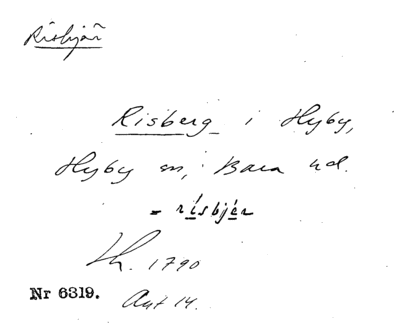 Risbjär
Risberg i Hyby,
Hyby sn, Bara hd.
= risbjér
Lh. 1790
Ant 14.
Nr 6319.